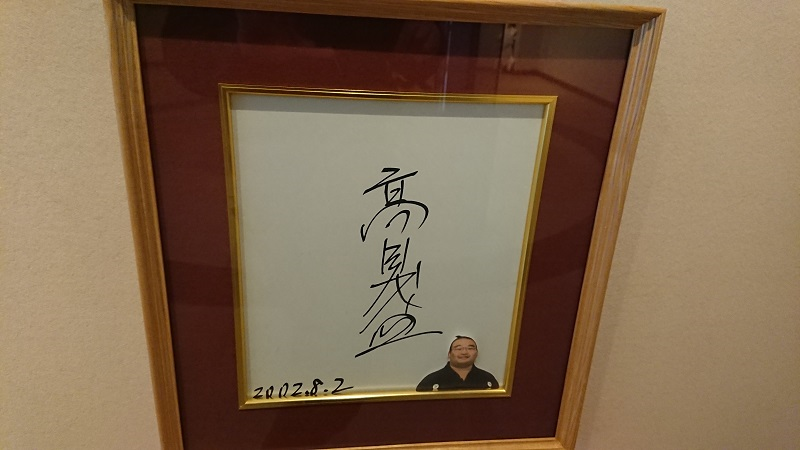 高見盛
2002.8.2